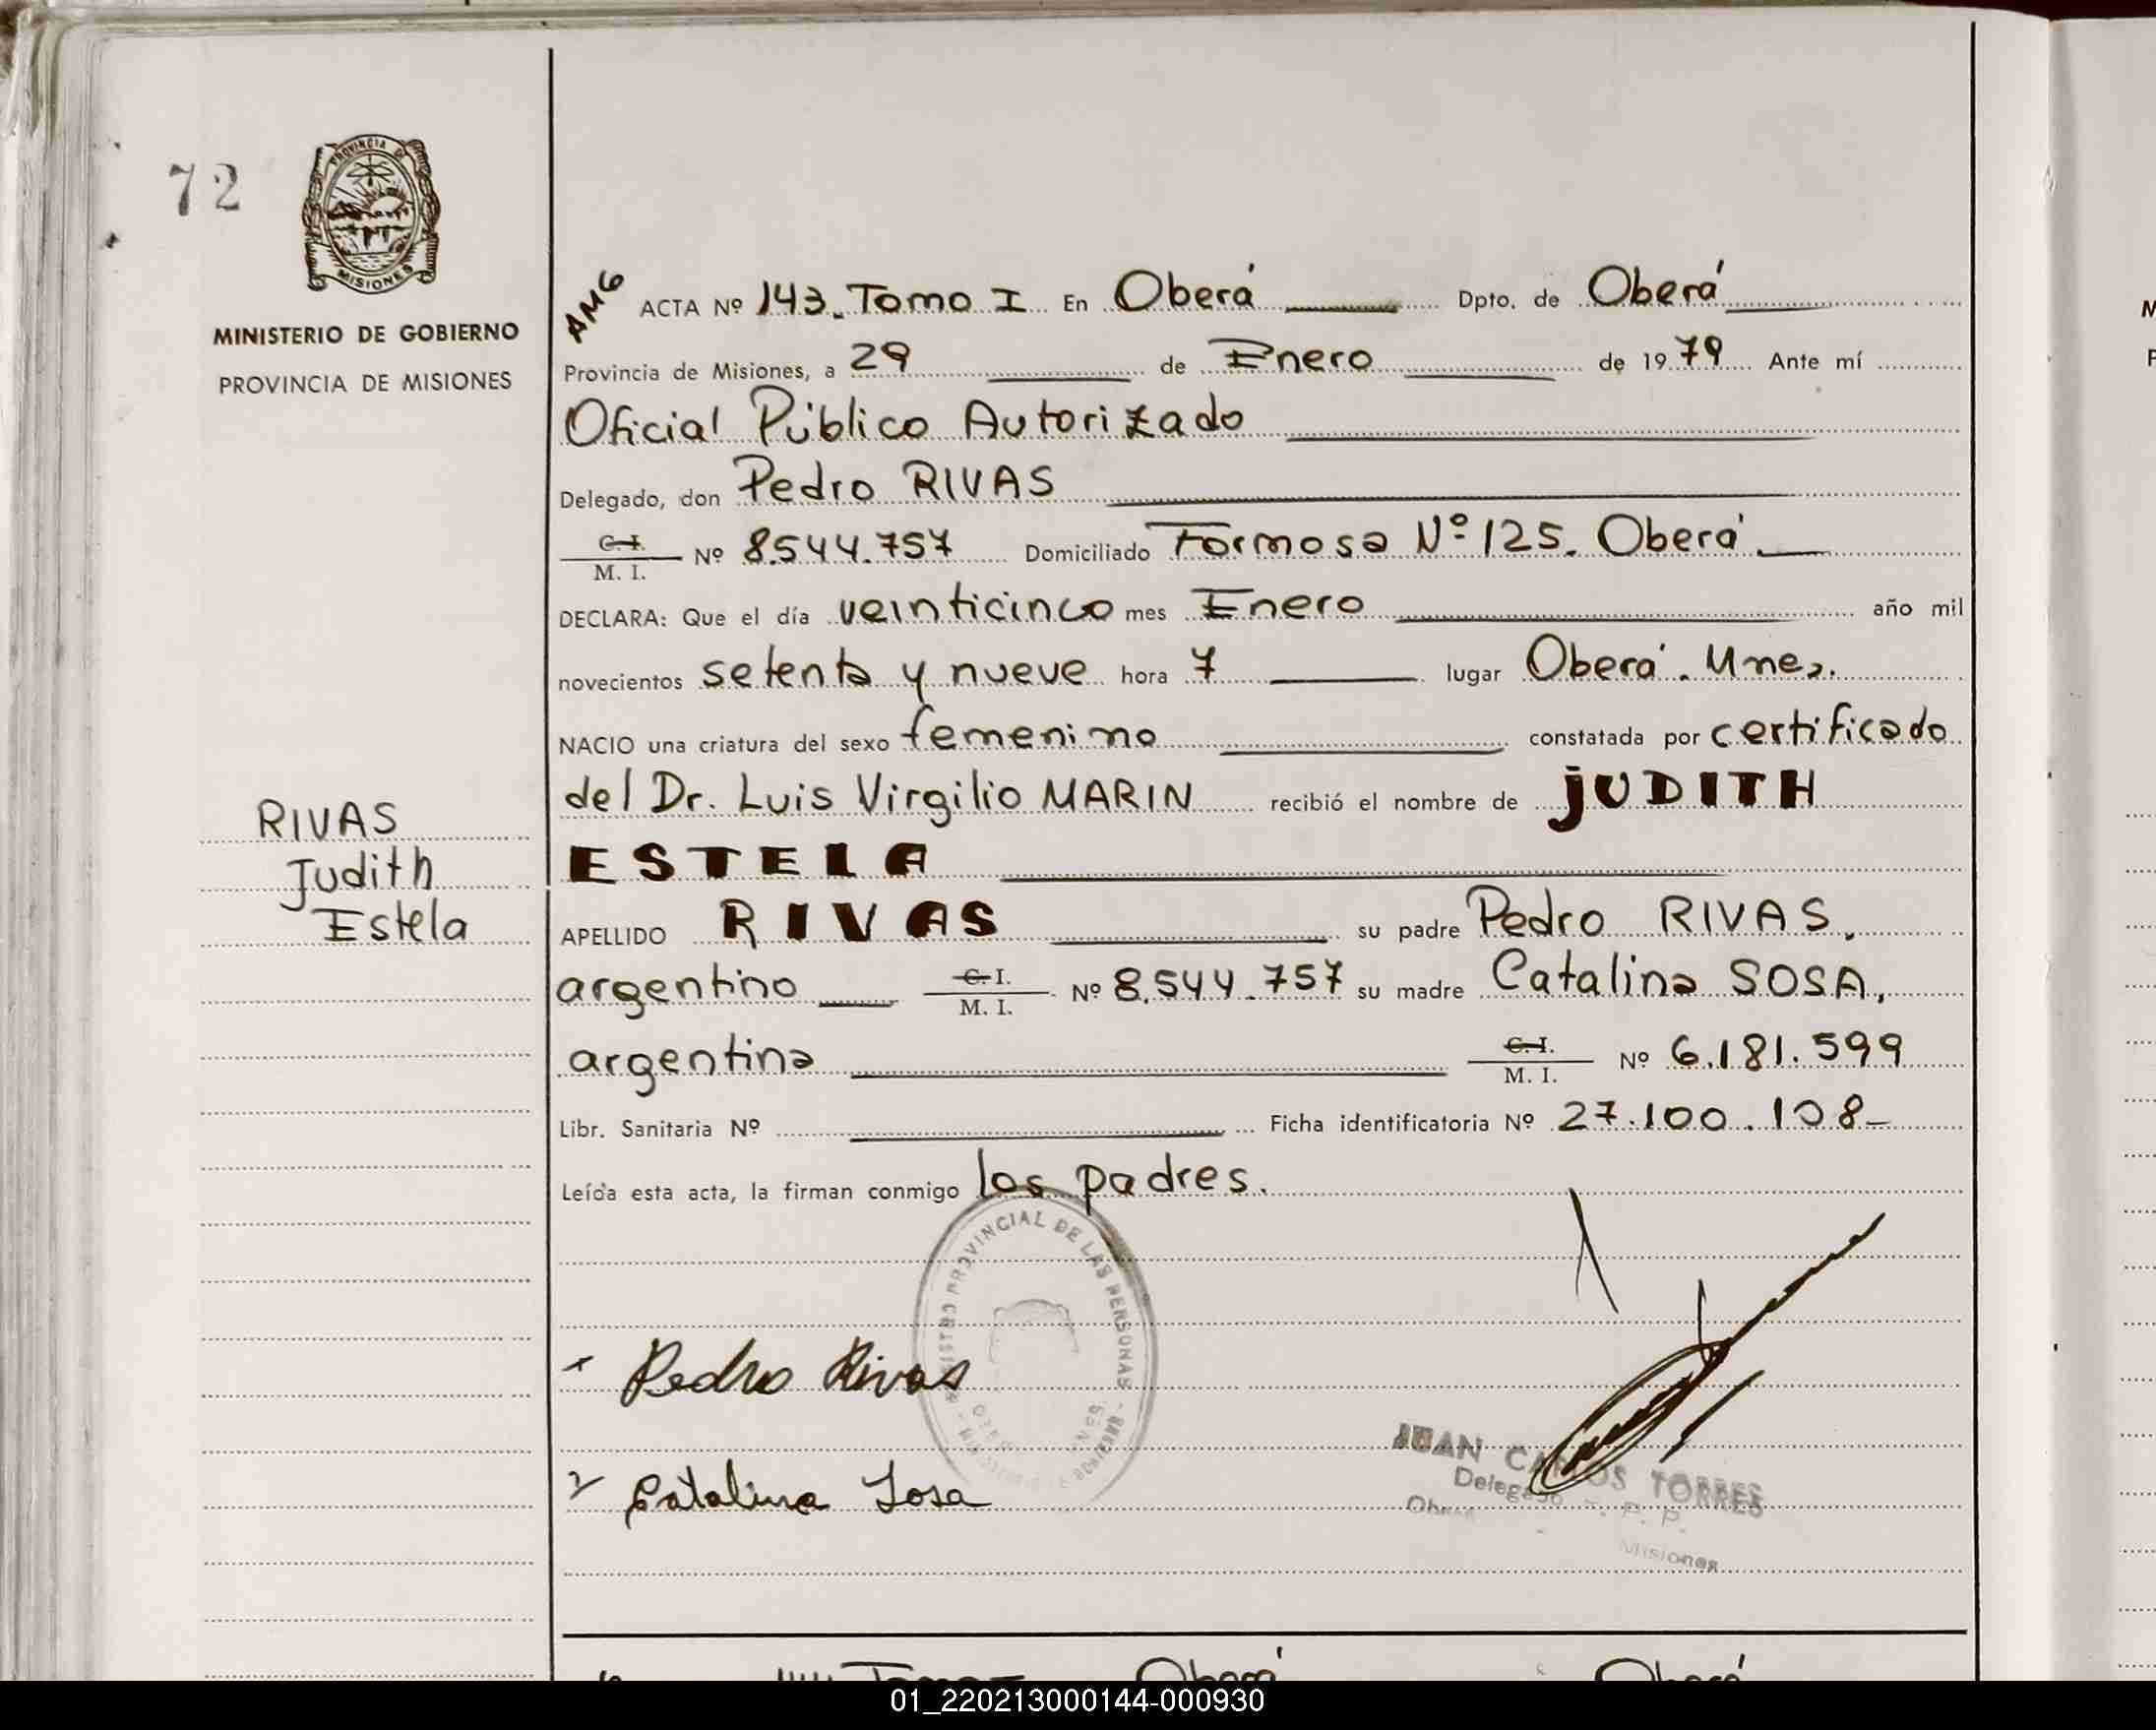 72
PROVINCIA DE
MISIONES
MINISTERIO DE GOBIERNO
PROVINCIA DE MISIONES
RIVAS
Judith
Estela
AMG
ACTA Nº 143. Tomo I En Oberá Dpto. de Oberá
Provincia de Misiones, a 29 de Enero de 1979 Ante mí
Oficial Público Autorizado
Delegado, don Pedro RIVAS
C.I.
M. I. Nº 8.544.757 Domiciliado Formosa Nº 125. Oberá
DECLARA: Que el día veinticinco mes Enero año mil
novecientos setenta y nueve hora 7 lugar Oberá. Mnes.
NACIO una criatura del sexo femenino constatada por certificado
del Dr. Luis Virgilio MARIN recibió el nombre de JUDITH
ESTELA
APELLIDO RIVAS su padre Pedro RIVAS,
argentino C.I. M. I. Nº 8.544.757 su madre Catalina SOSA,
argentina C.I. M. I. Nº 6.181.599
Libr. Sanitaria Nº Ficha identificatoria Nº 27.100.108-
Leída esta acta, la firman conmigo los padres.
PROVINCIAL DE LAS PERSONAS
Pedro Rivas
Catalina Sosa
JUAN CARLOS TORRES
Delegado T. P. P.
Misiones
01_220213000144-000930